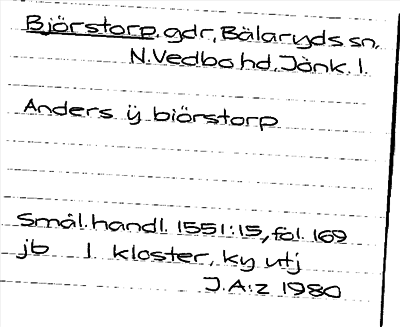 Björstorp. gdr, Bälaryds sn,
N.Vedbo hd, Jönk. l.
Anders ÿ biörstorp
Smål. handl. 1551:15, fol. 169
jb 1 kloster, ky utj
J.A:z 1980